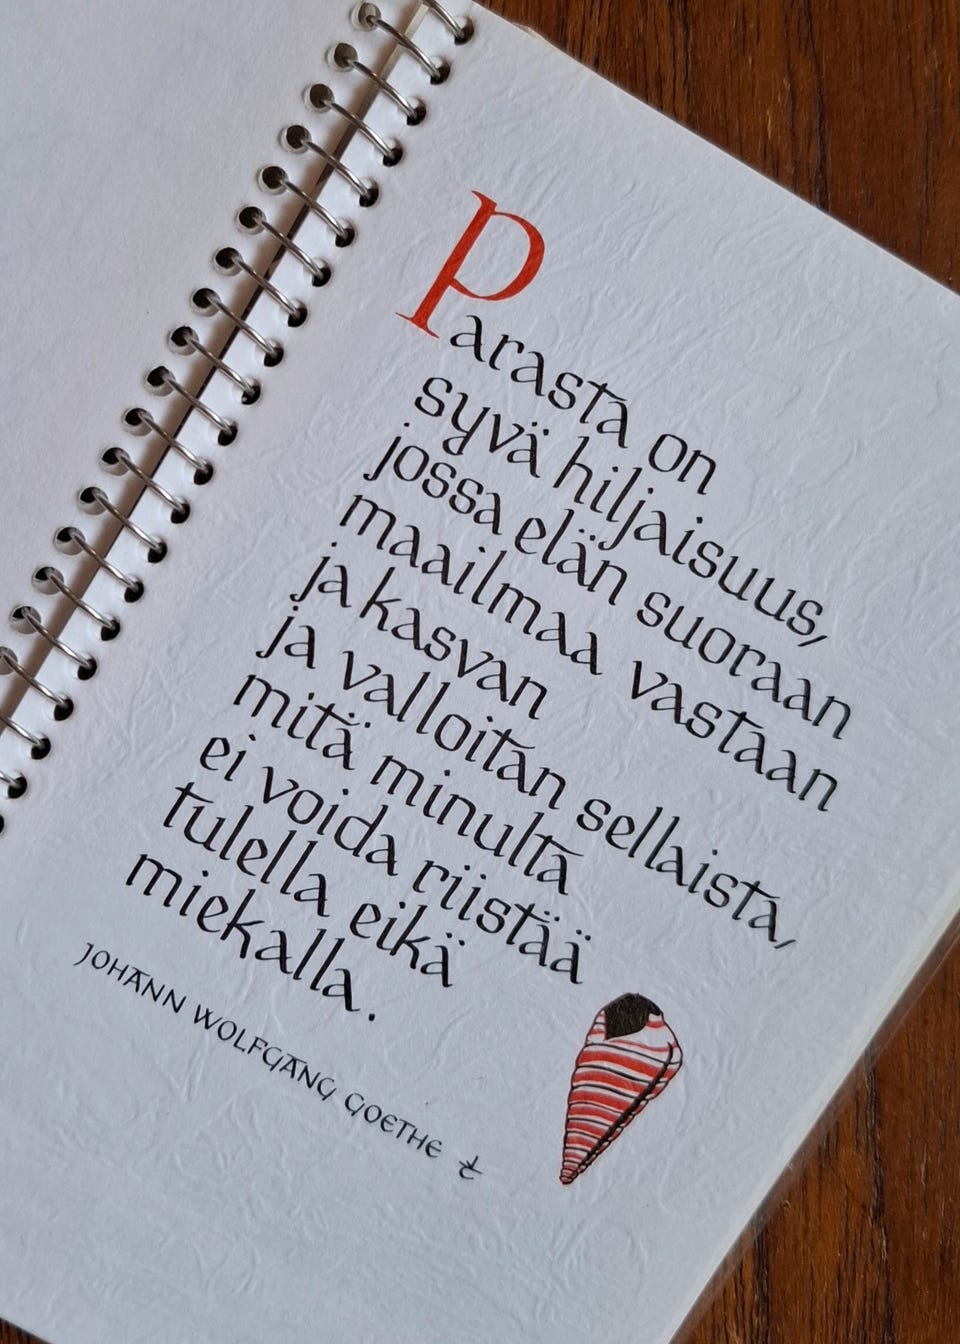 Parasta on
syvä hiljaisuus,
jossa elän suoraan
maailmaa vastaan
ja kasvan
ja valloitan sellaista,
mitä minulta
ei voida riistää
tulella eikä
miekalla.
JOHANN WOLFGANG GOETHE